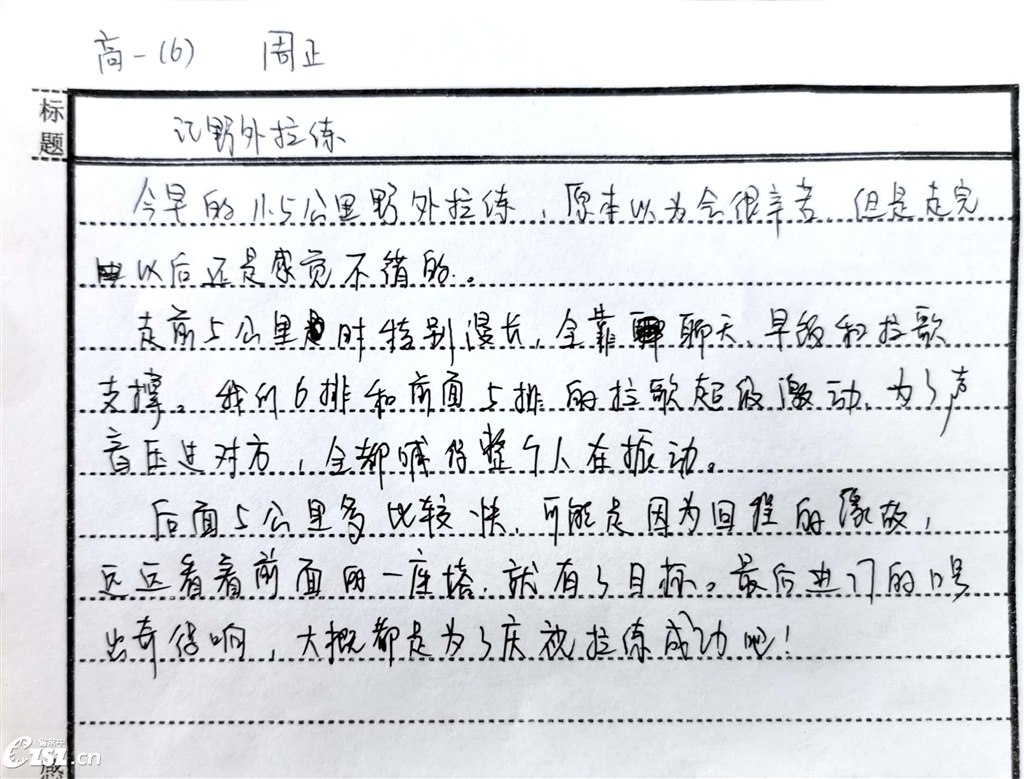 高一(6) 周正
标题
记野外拉练
今早的11.5公里野外拉练,原本以为会很辛苦,但是走完
以后还是感觉不错的。
走前5公里时特别漫长,全靠聊天、早饭和拉歌
支撑。我们6排和前面5排的拉歌超级激动,为了声
音压过对方,全都喊得整个人在振动。
后面5公里多比较快,可能是因为回程的缘故,
远远看着前面的一座塔,就有了目标。最后进门的口号
出奇得响,大概都是为了庆祝拉练成功吧!
感
.cn